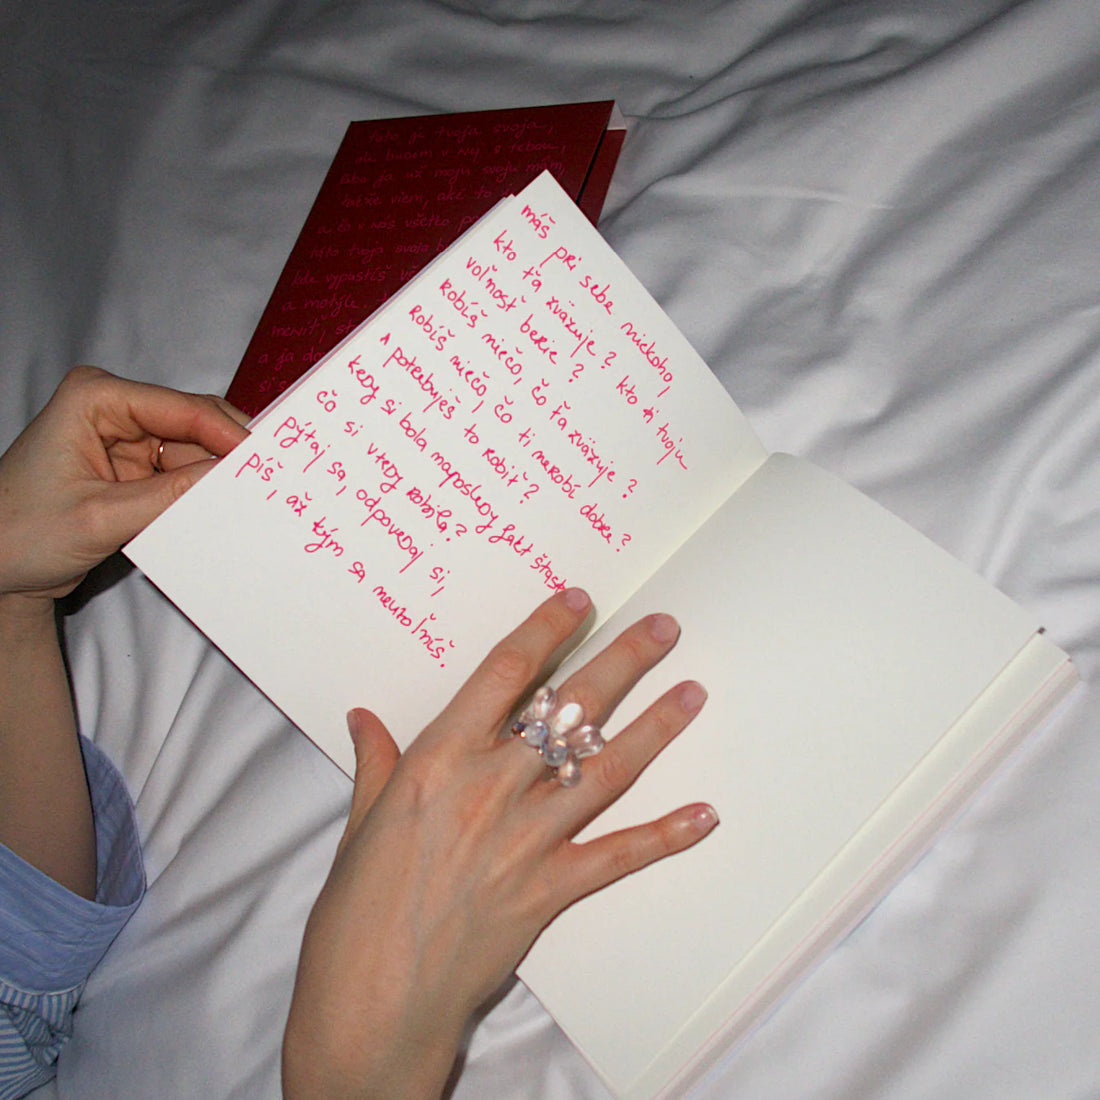 toto je tvoja svoja,
ak budem v nej s tebou,
lebo ja už moju svoju mám,
takže viem, aké to
a čo v nás všetko
táto tvoja svoja
kde vypustíš
a motýle.
meniť,
a ja
si
máš pri sebe niekoho,
kto ťa zväzuje? kto ti tvoju
voľnosť berie?
robíš niečo, čo ťa zväzuje?
robíš niečo, čo ti nerobí dobre?
a potrebuješ to robiť?
kedy si bola naposledy fakt
čo si vtedy robila?
pýtaj sa, odpovedaj si,
píš, až kým sa neuvoľníš.